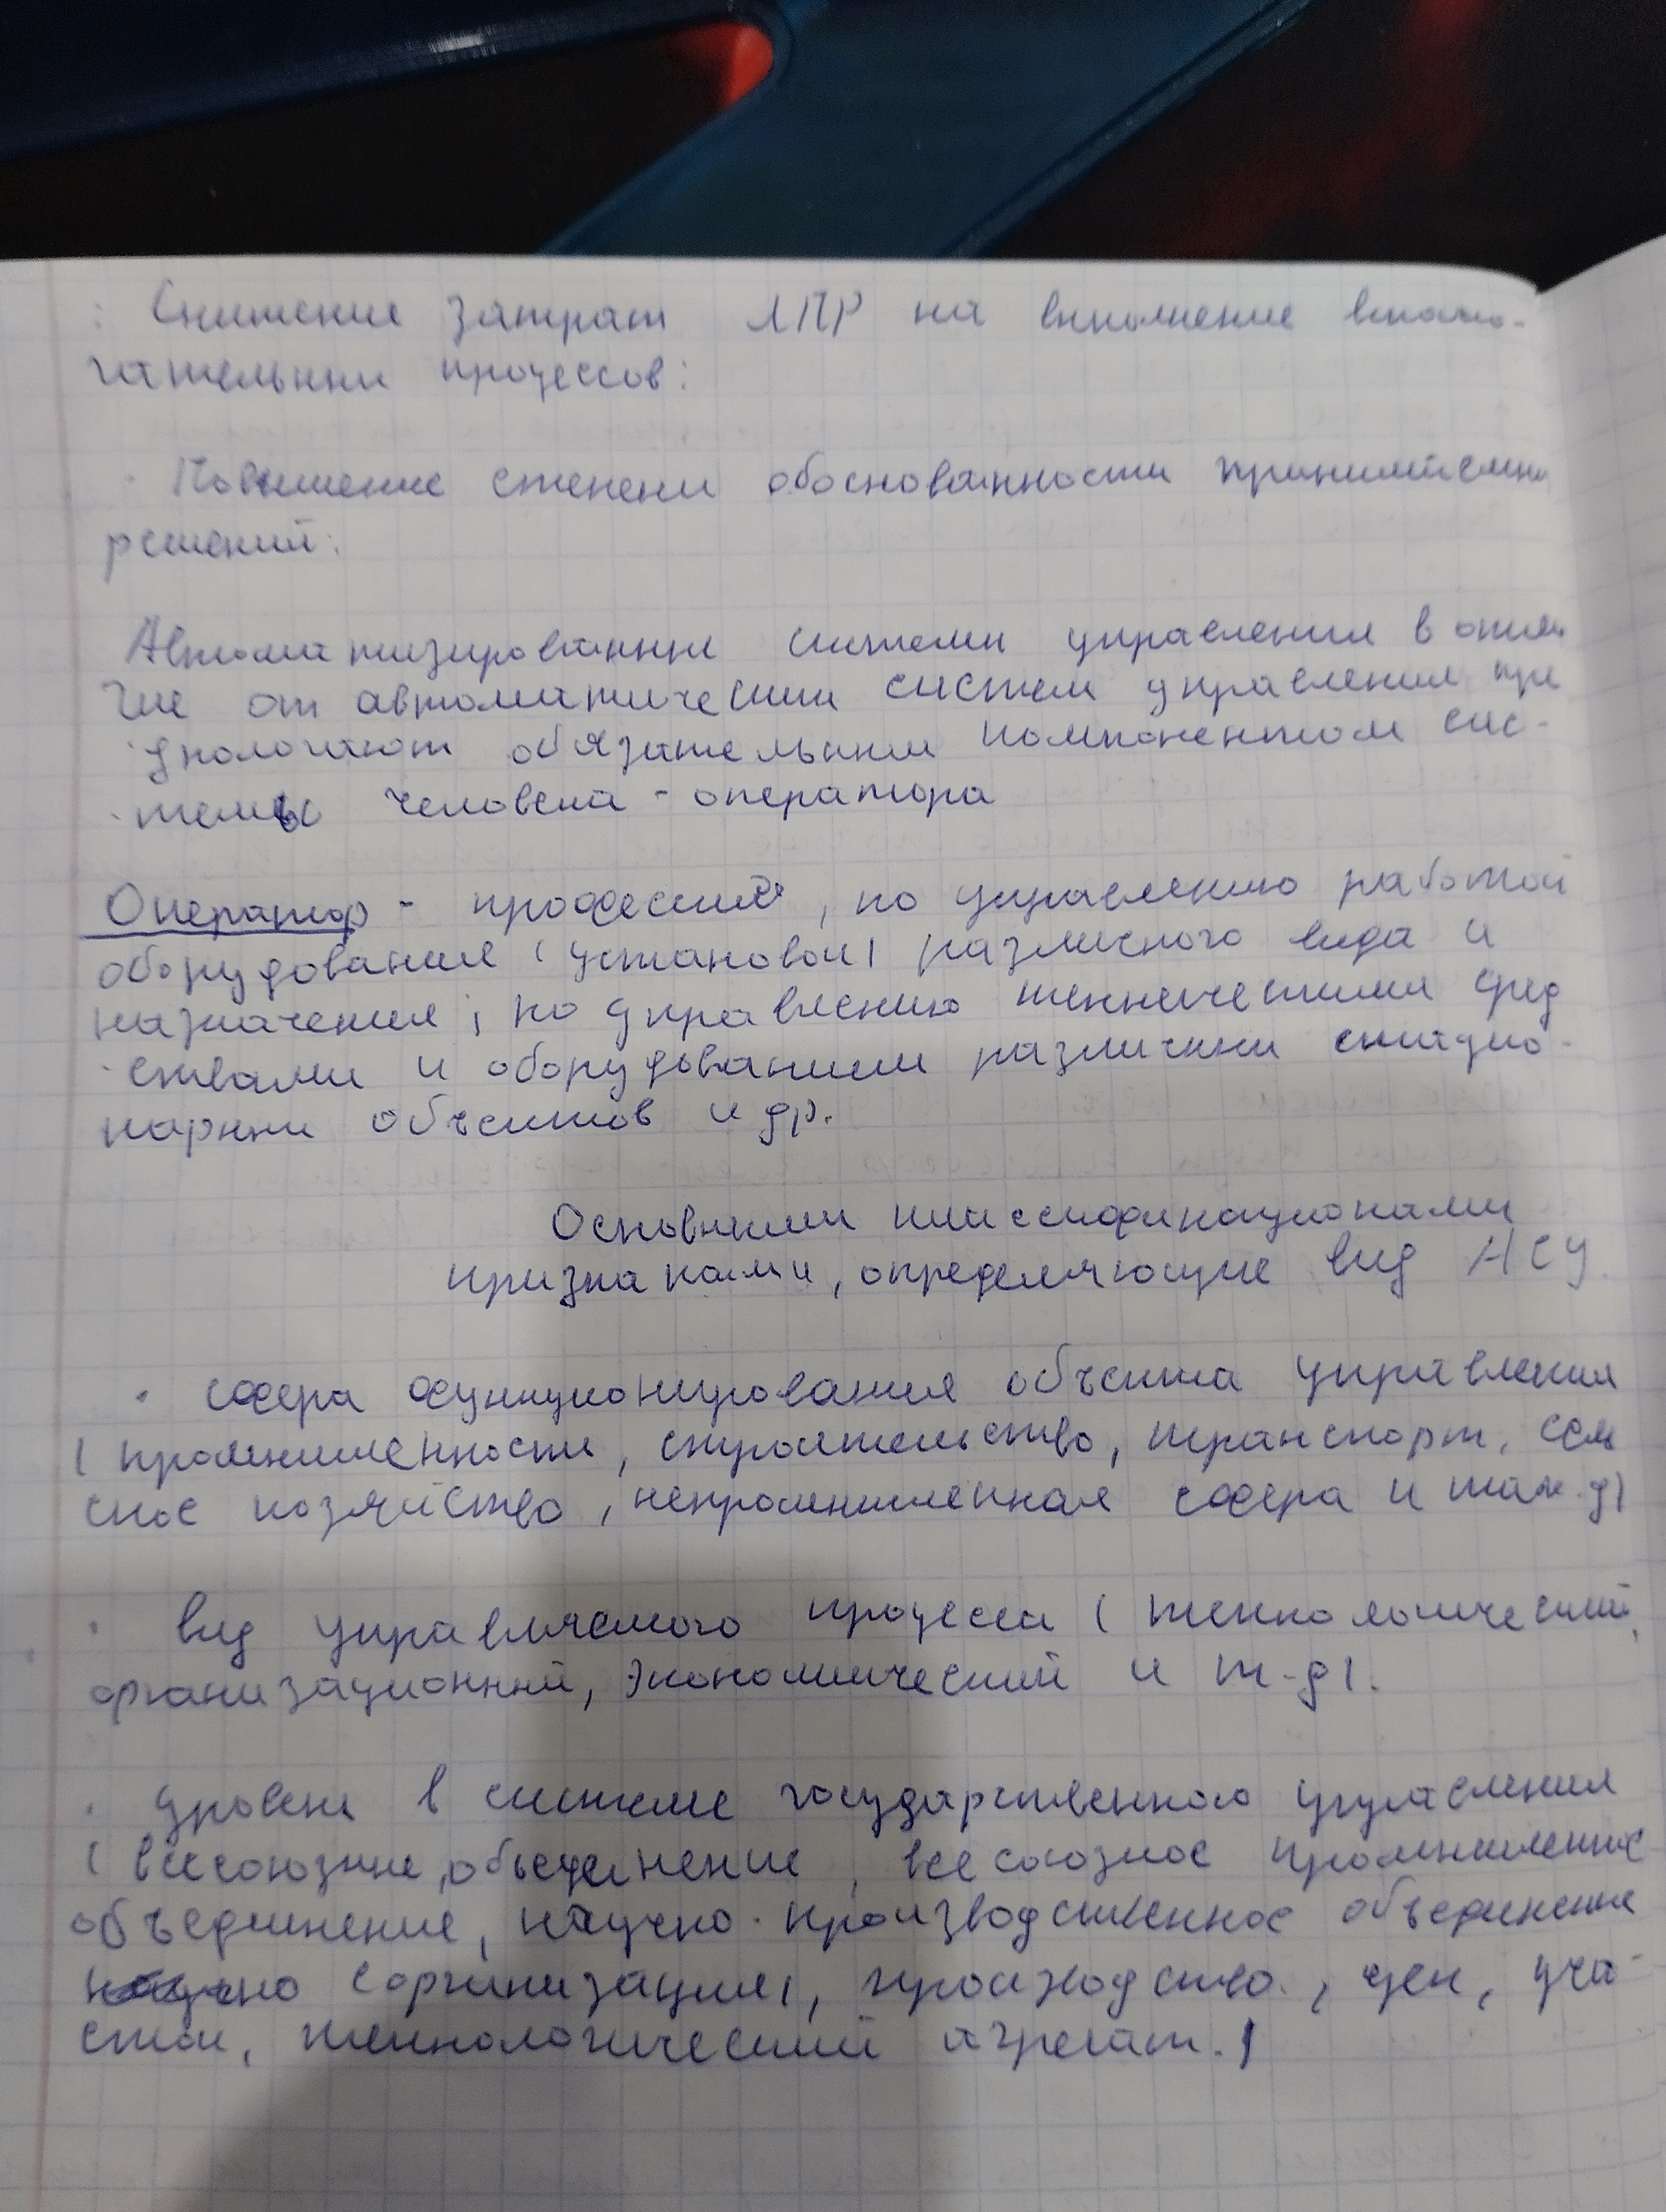 · Снижение затрат ЛПР на выполнение вспомо-
гательных процессов:
· Повышение степени обоснованности принимаемых
решений:
Автоматизированные системы управления в отли
чие от автоматических систем управления пре
дполагают обязательным компонентом сис-
темы человека - оператора
Оператор - профессий, по управлению работой
оборудования (установой) различного вида и
назначения, по управлению техническими сред
ствами и оборудованием различных стацио-
нарных объектов и др.
Основными классификационами
признаками, определяющие вид АСУ
· сфера функционирования объекта управления
(промышленность, строительство, транспорт, сель
ское хозяйство, непромышленная сфера и так.д)
· вид управляемого процесса (технологический,
организационный, экономический и т-д).
· уровень в системе государственного управления
(всесоюзные, объединение, всесоюзное промышленное
объединение, научно-производственное объединение
(организация), производство, цех, уча-
сток, технологический агрегат.)